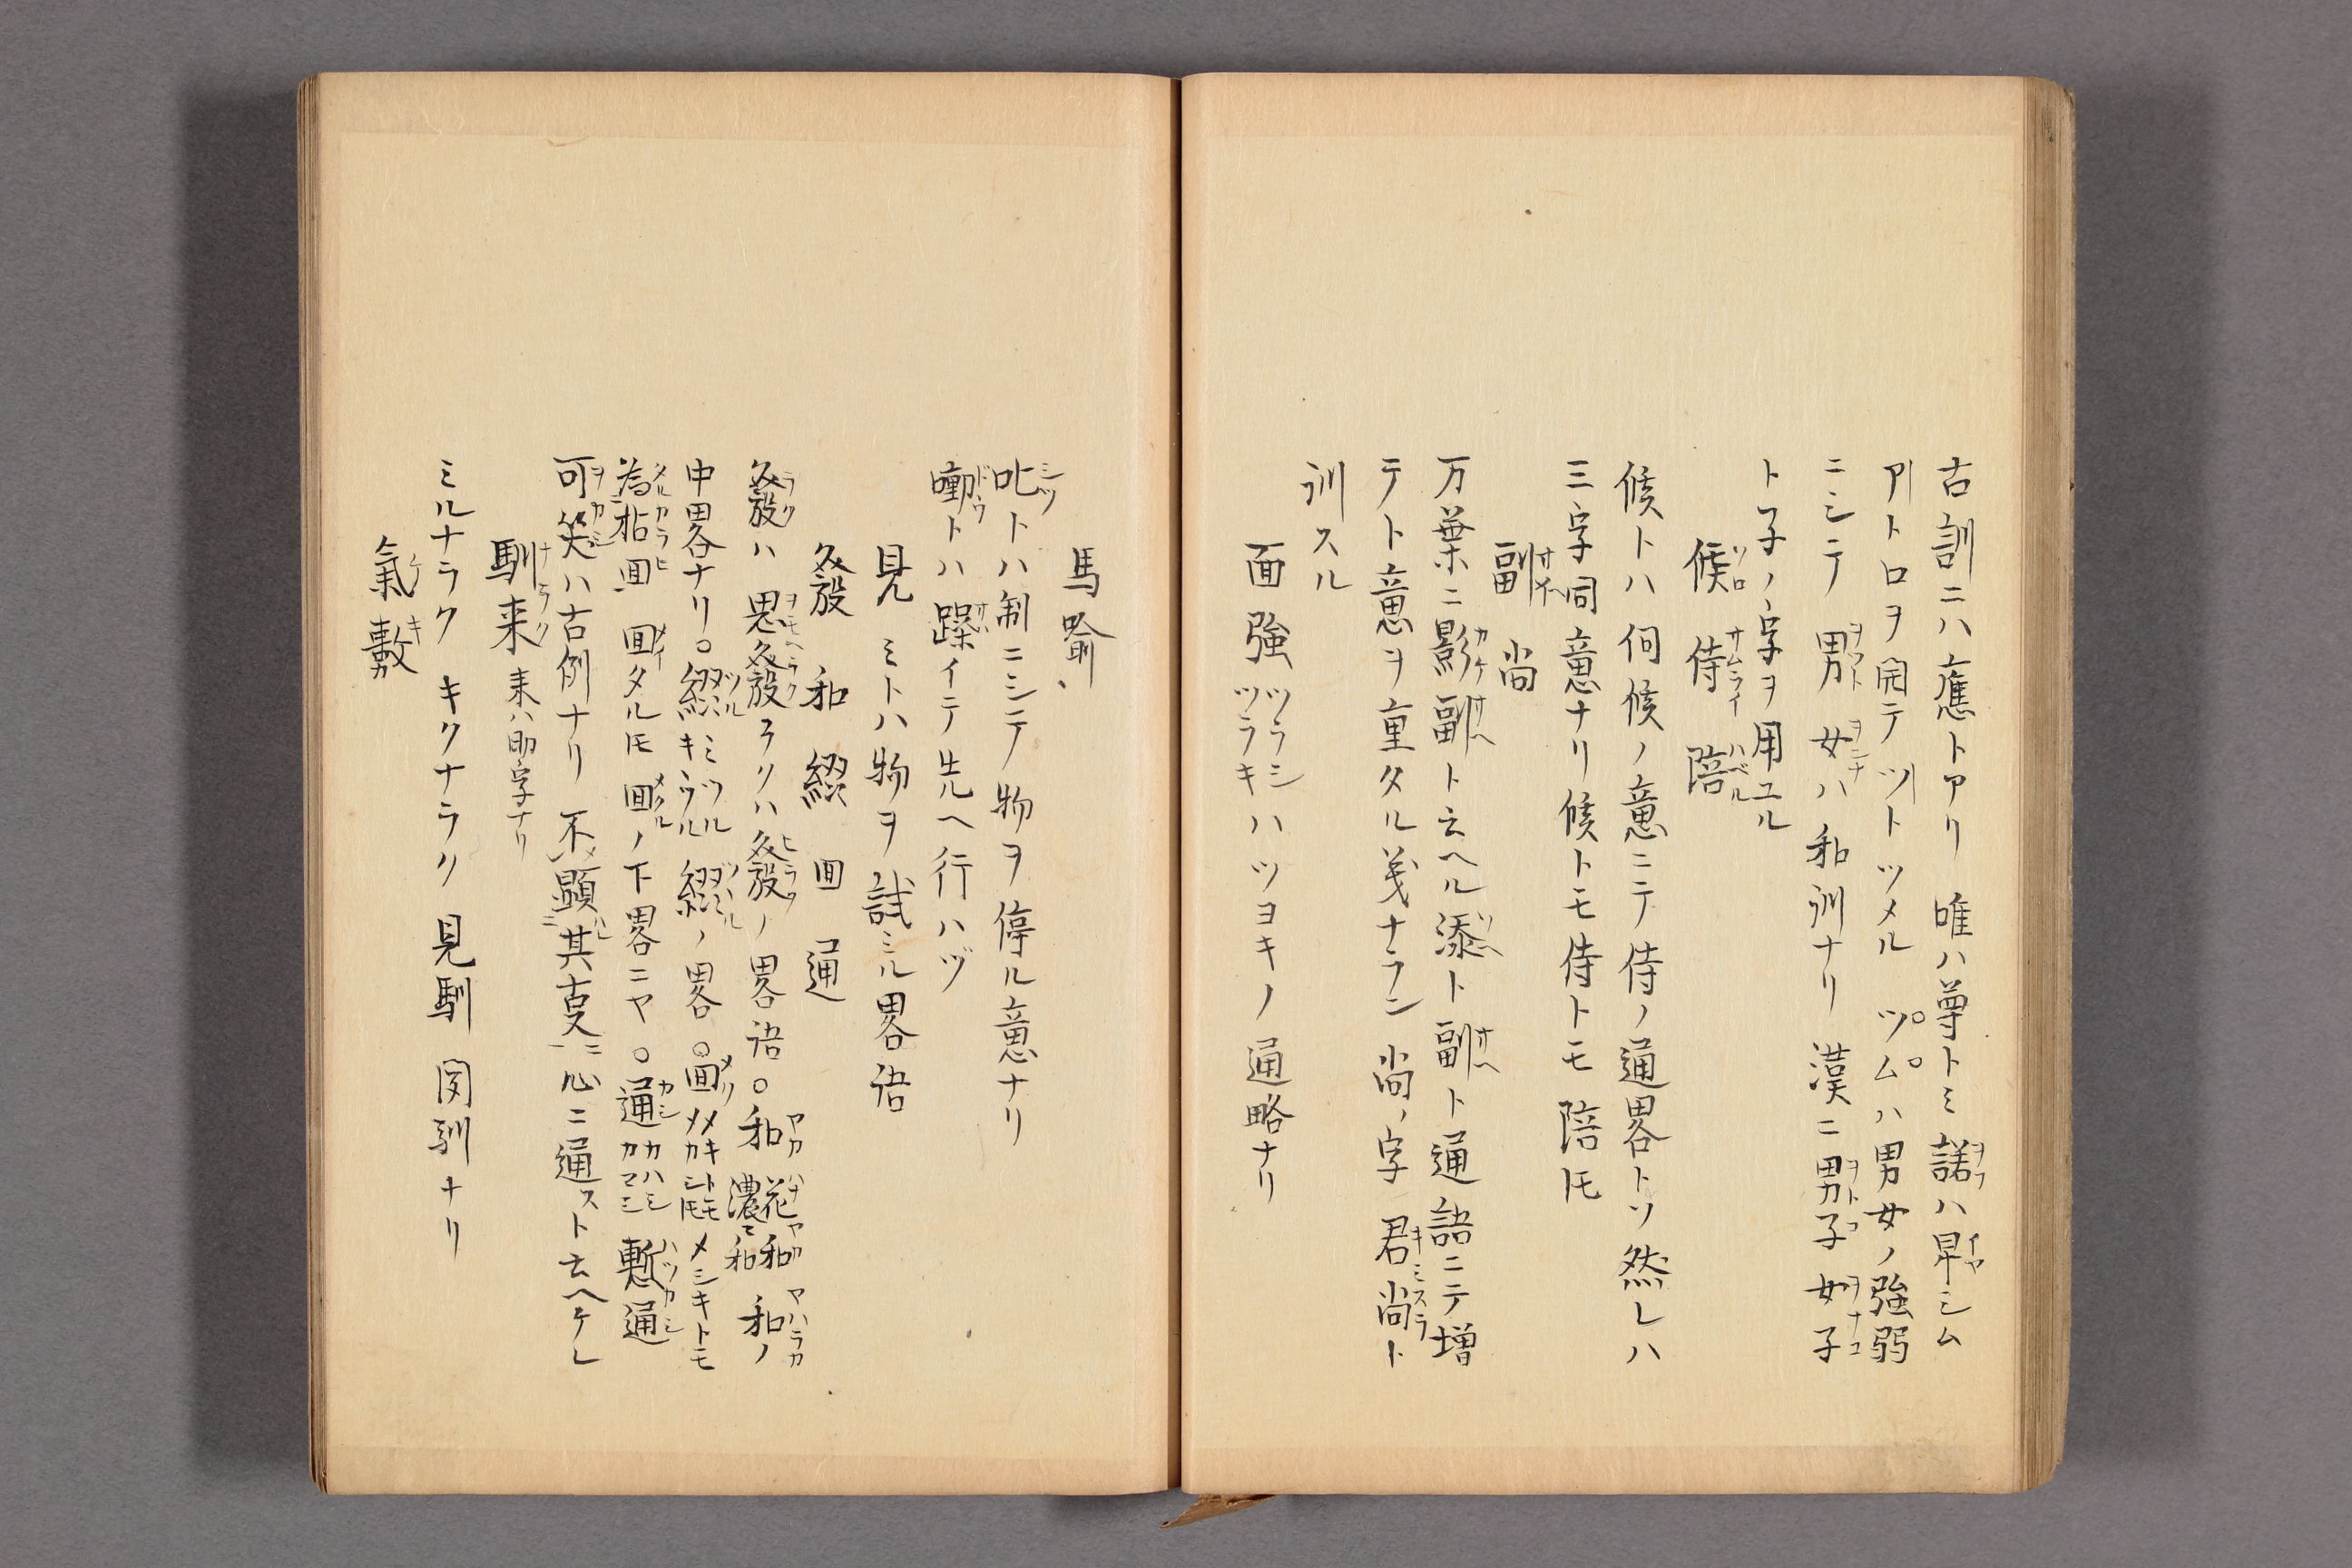 古訓ニハ應トアリ 唯ハ尊トミ諾ハ早シム
アトロヲ開テツトツメル ツムハ男女ノ強弱
ニシテ 男女ハ和訓ナリ 漢ニ男子女子
ト子ノ字ヲ用ユル
候 侍 陪
候トハ伺候ノ意ニテ侍ノ通畧トソ然レハ
三字同意ナリ候トモ侍トモ陪トモ
副 尚
万葉ニ影副ト云ヘル添ト副ト通語ニテ増
テト意ヲ重タル義ナラン 尚ノ字 君尚ト
訓スル
面強 ツラシ ツラキ ハツヨキノ通略ナリ
馬喩
叱トハ制ニシテ物ヲ停ル意ナリ
嘞トハ躁イテ先ヘ行ハヅ
見 ミトハ物ヲ試ミル畧語
發 和 綴 面 通
發ハ思發ラクハ發ノ畧語○和 花和 濃和 和ノ
中畧ナリ○綴 ミツル キウル 綴ノ畧○面 メキトモ メカシトモ メシキトモ
為拈面 面タルトモ面ノ下畧ニヤ○通 カハシ カマシ 慙通
可笑ハ古例ナリ 不顕其支ニ心ニ通スト云ヘケレ
馴来 来ハ助字ナリ
ミルナラク キクナラク 見馴 聞馴ナリ
氣敷